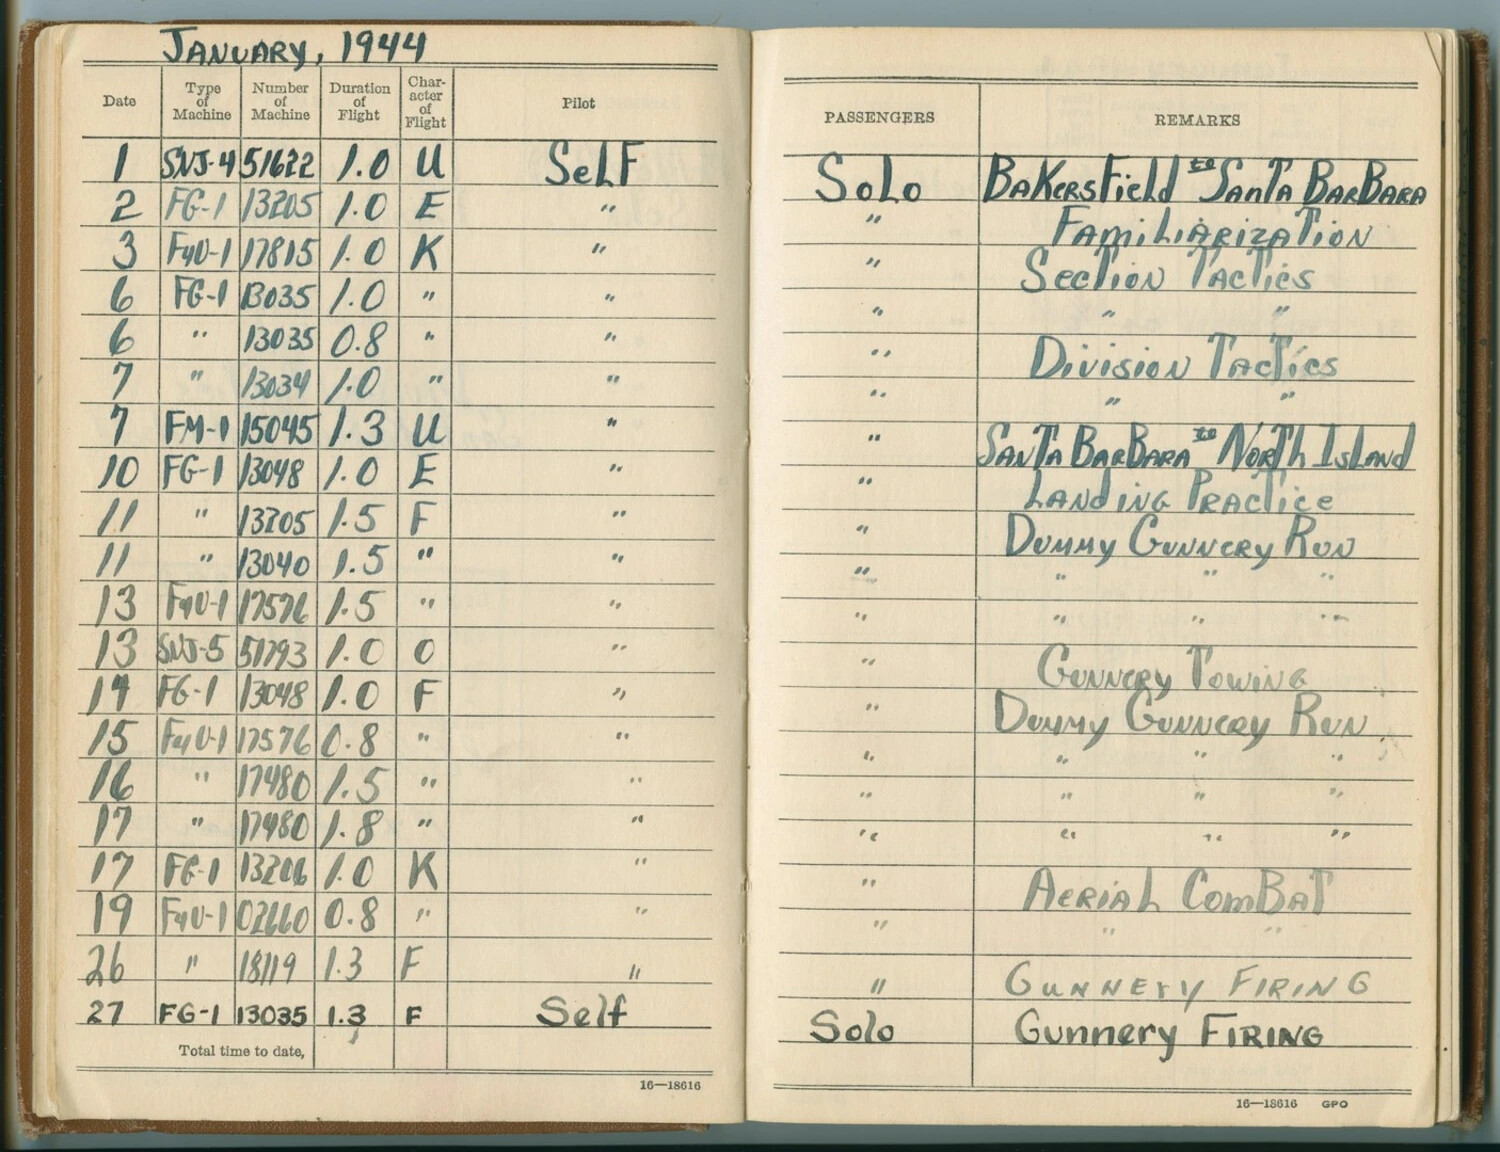 January, 1944
Date Type of Machine Number of Machine Duration of Flight Character of Flight Pilot PASSENGERS REMARKS
1 SNJ-4 51622 1.0 U Self Solo Bakersfield to Santa Barbara
2 FG-1 13205 1.0 E " " Familiarization
3 F4U-1 17815 1.0 K " " Section Tactics
6 FG-1 13035 1.0 " " " " "
6 " 13035 0.8 " " " Division Tactics
7 " 13034 1.0 " " " " "
7 FM-1 15045 1.3 U " " Santa Barbara to North Island
10 FG-1 13048 1.0 E " " Landing Practice
11 " 13205 1.5 F " " Dummy Gunnery Run
11 " 13040 1.5 " " " " " "
13 F4U-1 17576 1.5 " " " " " "
13 SNJ-5 51793 1.0 O " " Gunnery Towing
14 FG-1 13048 1.0 F " " Dummy Gunnery Run
15 F4U-1 17576 0.8 " " " " " "
16 " 17480 1.5 " " " " " "
17 " 17480 1.8 " " " " " "
17 FG-1 13206 1.0 K " " Aerial Combat
19 F4U-1 02660 0.8 " " " " "
26 " 18119 1.3 F " " Gunnery Firing
27 FG-1 13035 1.3 F Self Solo Gunnery Firing
Total time to date,
16—18616
16—18616 GPO